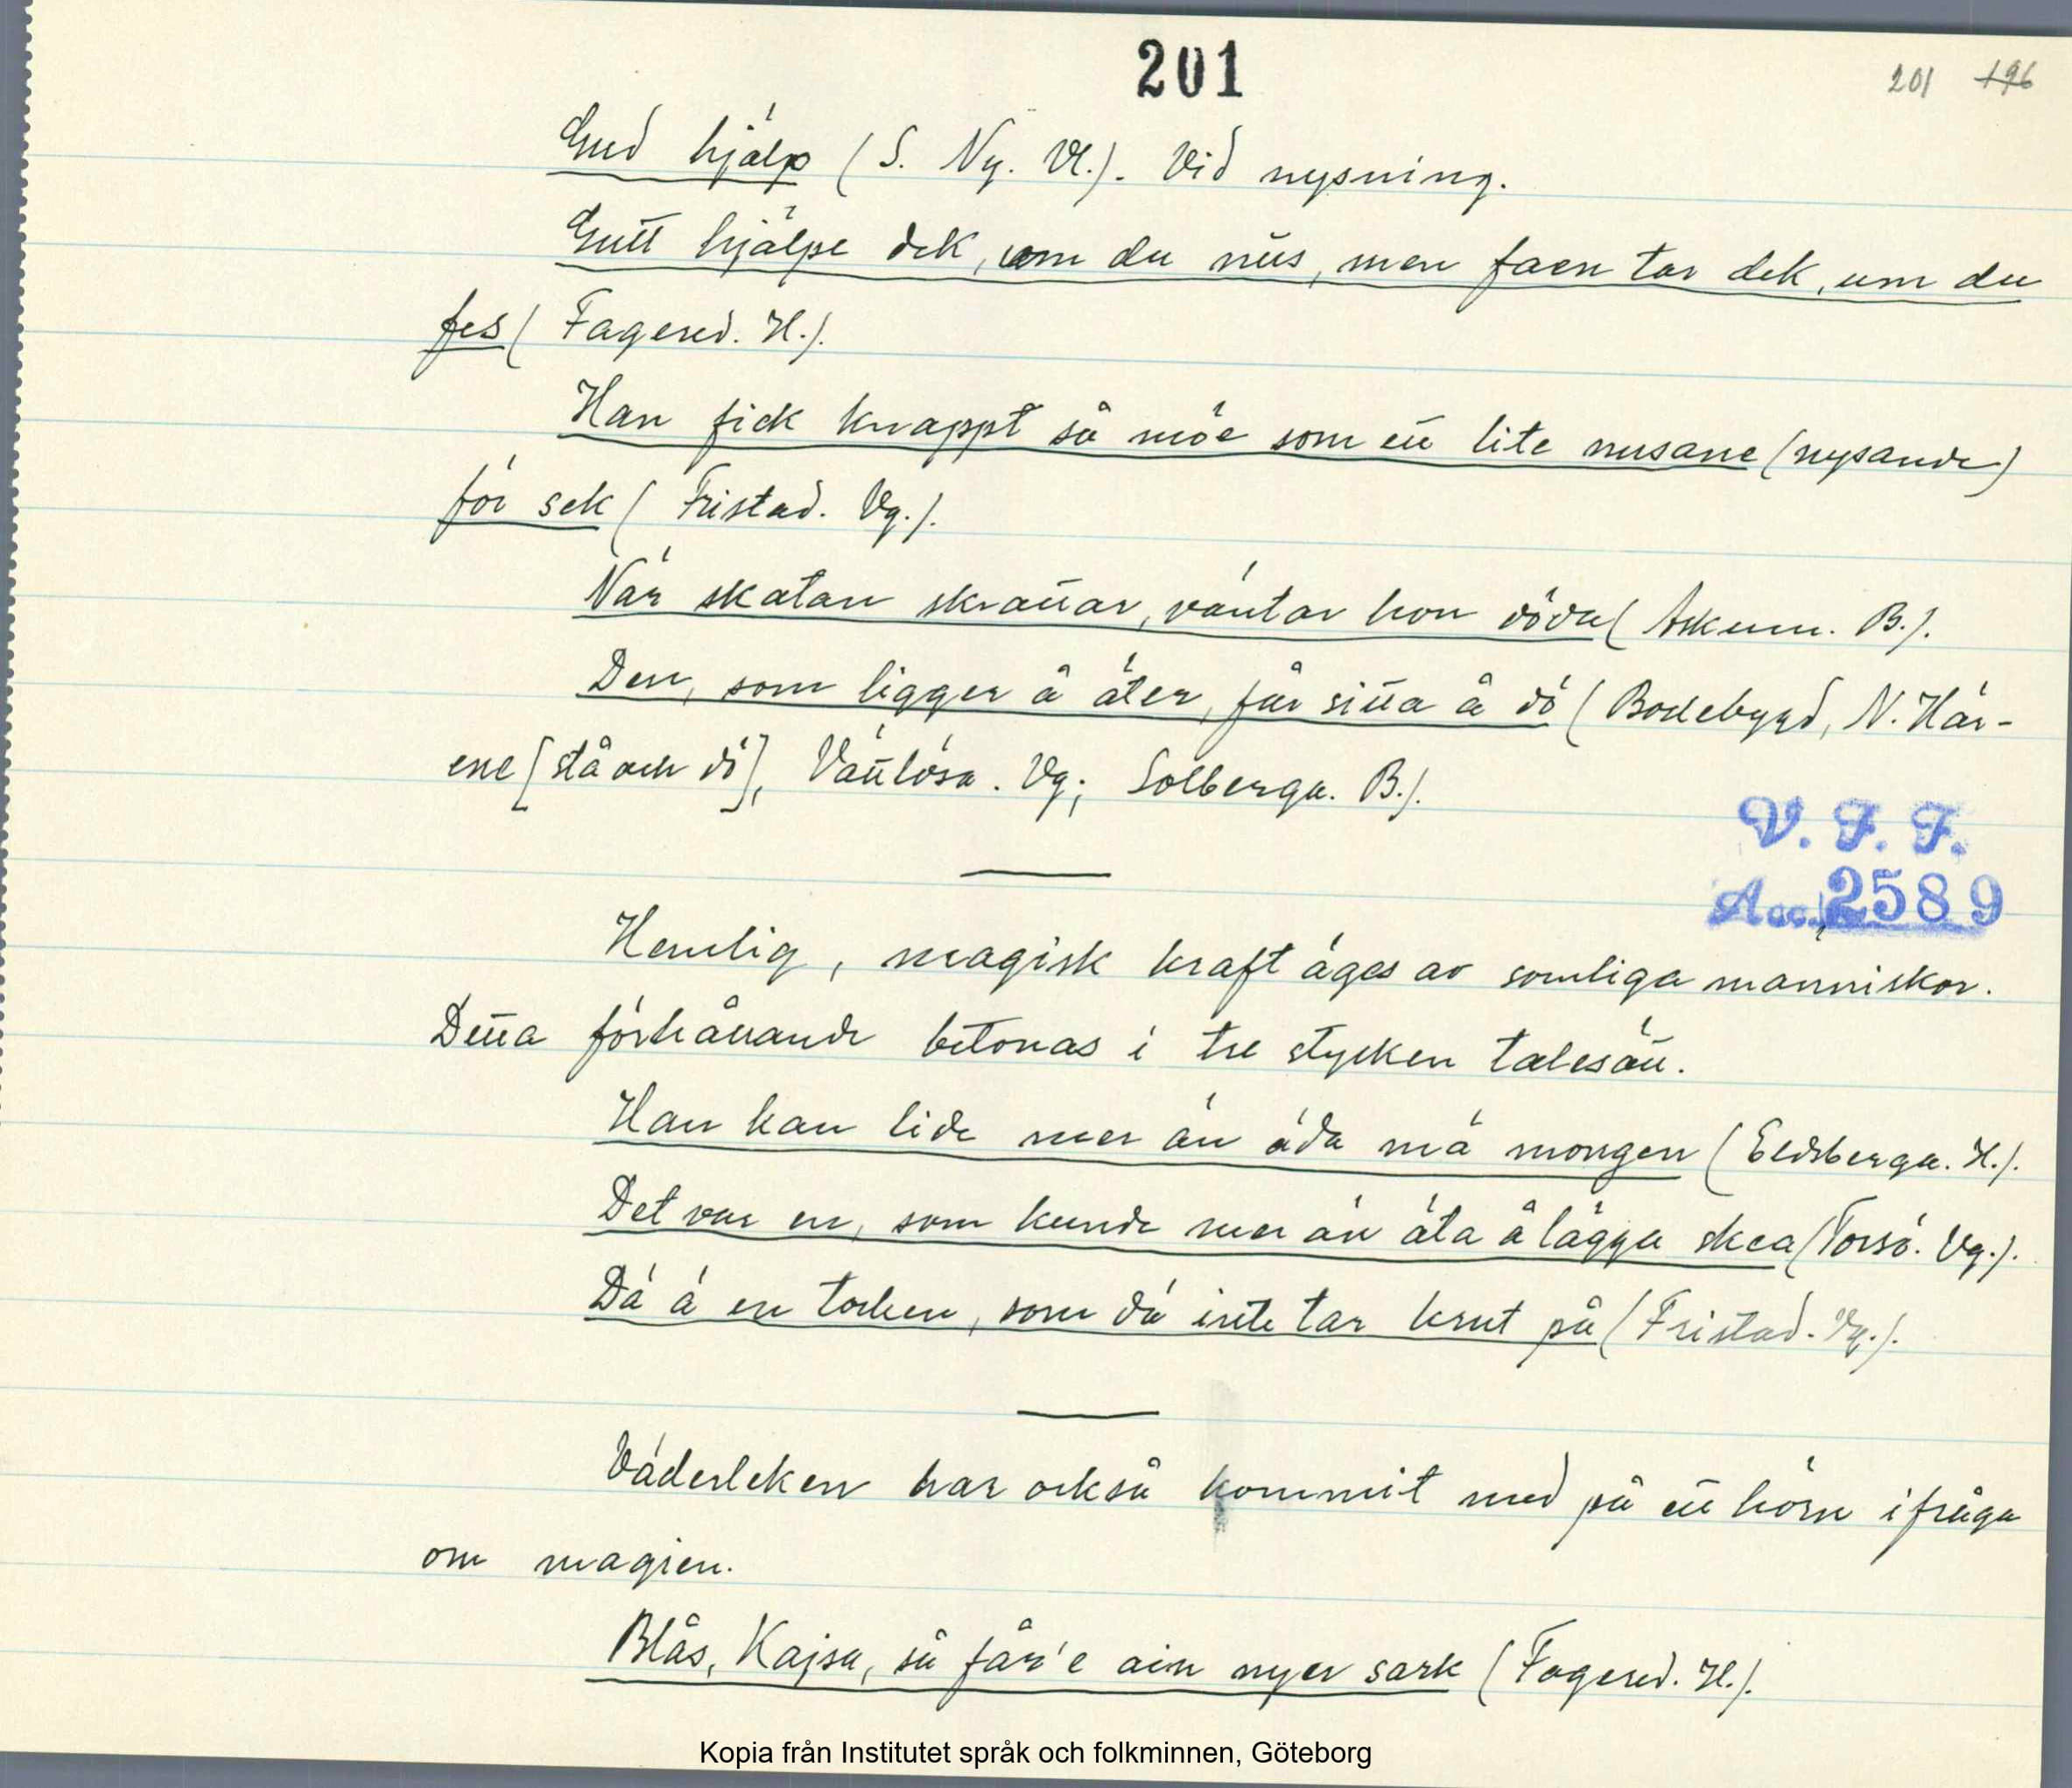 201
201 196
Gud hjälp (S. Ny. Vl.). Vid nysning.
Gutt hjälpe dek, um du nus, men faen tar dek, um du
fes (Fagered. H.).
Han fick knappt så möe som ett lite nusane (nysande)
för sek (Fristad. Vg.).
När skatan skrattar, väntar hon döda (Askum. B.).
Den, som ligger å äter, får sitta å dö (Bollebygd, N. Här-
ene [stå och dö], Vättlösa. Vg; Solberga. B.).
V. F. F.
Acc. 2589
Hemlig, magisk kraft äges av somliga människor.
Detta förhållande betonas i tre stycken talesätt.
Han kan lide mer än äda mä mongen (Eldsberga. H.).
Det var en, som kunde mer än äta å lägga skea (Torsö. Vg.).
Dä ä en tocken, som dä inte tar krut på (Fristad. Vg.).
Väderleken har också kommit med på ett hörn i fråga
om magien.
Blås, Kajsa, så får'e ain nyer sark (Fagered. H.).
Kopia från Institutet språk och folkminnen, Göteborg